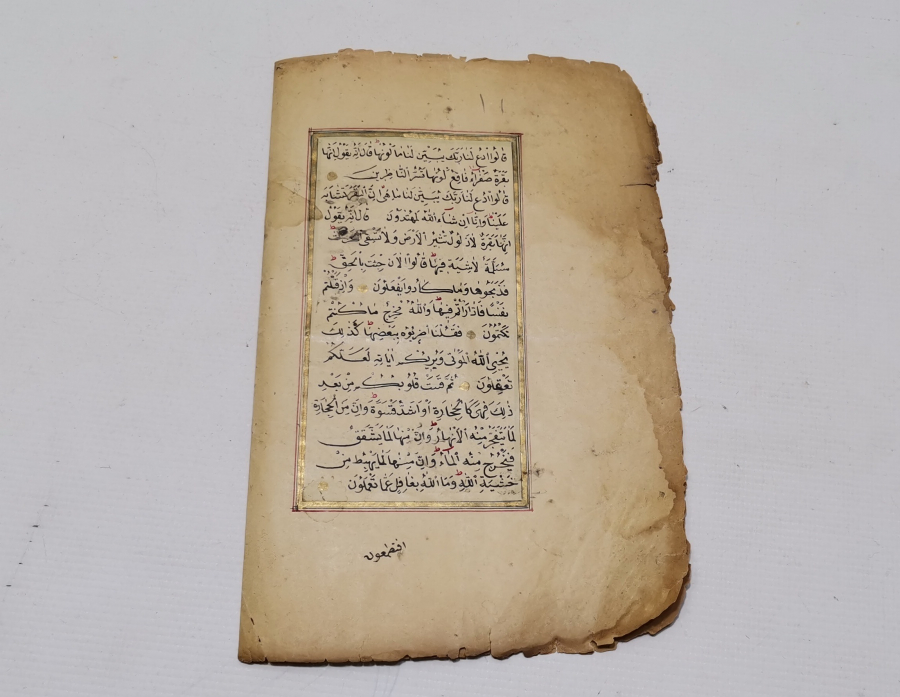 ١١
قَالُوا ادْعُ لَنَا رَبَّكَ يُبَيِّنْ لَنَا مَا لَوْنُهَا قَالَ إِنَّهُ يَقُولُ إِنَّهَا
بَقَرَةٌ صَفْرَاءُ فَاقِعٌ لَوْنُهَا تَسُرُّ النَّاظِرِينَ
قَالُوا ادْعُ لَنَا رَبَّكَ يُبَيِّنْ لَنَا مَا هِيَ إِنَّ الْبَقَرَ تَشَابَهَ
عَلَيْنَا وَإِنَّا إِنْ شَاءَ اللَّهُ لَمُهْتَدُونَ قَالَ إِنَّهُ يَقُولُ
إِنَّهَا بَقَرَةٌ لَا ذَلُولٌ تُثِيرُ الْأَرْضَ وَلَا تَسْقِي الْحَرْثَ
مُسَلَّمَةٌ لَا شِيَةَ فِيهَا قَالُوا الْآنَ جِئْتَ بِالْحَقِّ
فَذَبَحُوهَا وَمَا كَادُوا يَفْعَلُونَ وَإِذْ قَتَلْتُمْ
نَفْسًا فَادَّارَأْتُمْ فِيهَا وَاللَّهُ مُخْرِجٌ مَا كُنْتُمْ
تَكْتُمُونَ فَقُلْنَا اضْرِبُوهُ بِبَعْضِهَا كَذَلِكَ
يُحْيِي اللَّهُ الْمَوْتَى وَيُرِيكُمْ آيَاتِهِ لَعَلَّكُمْ
تَعْقِلُونَ ثُمَّ قَسَتْ قُلُوبُكُمْ مِنْ بَعْدِ
ذَلِكَ فَهِيَ كَالْحِجَارَةِ أَوْ أَشَدُّ قَسْوَةً وَإِنَّ مِنَ الْحِجَارَةِ
لَمَا يَتَفَجَّرُ مِنْهُ الْأَنْهَارُ وَإِنَّ مِنْهَا لَمَا يَشَّقَّقُ
فَيَخْرُجُ مِنْهُ الْمَاءُ وَإِنَّ مِنْهَا لَمَا يَهْبِطُ مِنْ
خَشْيَةِ اللَّهِ وَمَا اللَّهُ بِغَافِلٍ عَمَّا تَعْمَلُونَ
افتطمعون